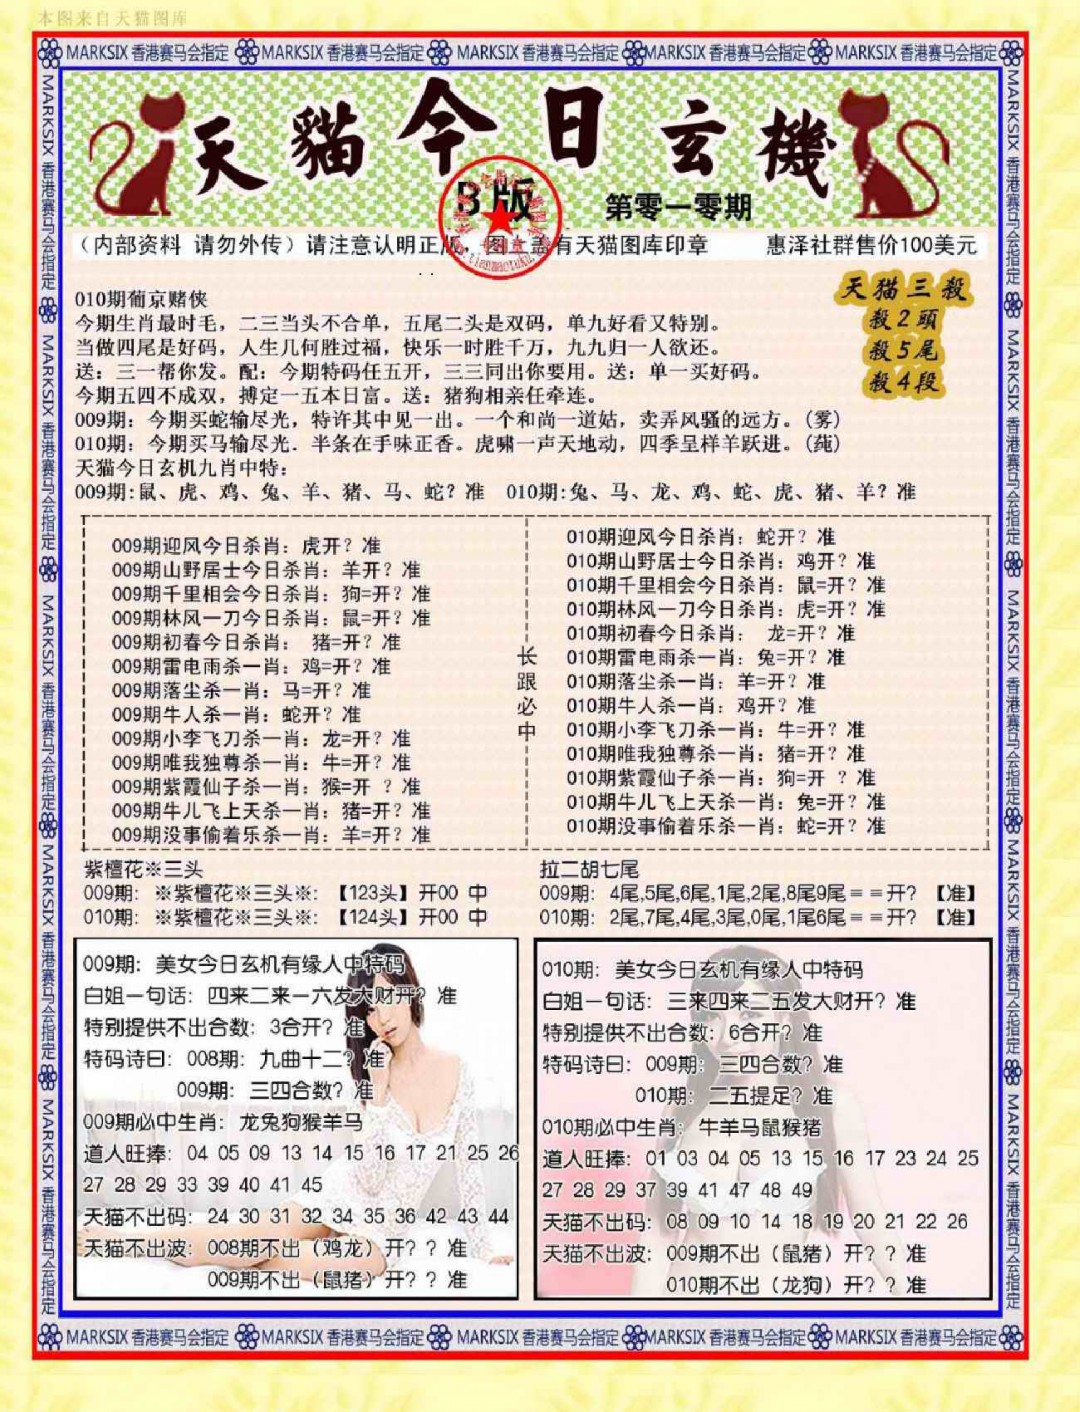 本图来自天猫图库
MARKSIX 香港赛马会指定 MARKSIX 香港赛马会指定 MARKSIX 香港赛马会指定 MARKSIX 香港赛马会指定 MARKSIX 香港赛马会指定
天貓今日玄機
B版
第零一零期
(内部资料 请勿外传)请注意认明正版,图上盖有天猫图库印章 惠泽社群售价100美元
天猫三殺
殺2頭
殺5尾
殺4段
010期葡京赌侠
今期生肖最时毛,二三当头不合单,五尾二头是双码,单九好看又特别。
当做四尾是好码,人生几何胜过福,快乐一时胜千万,九九归一人欲还。
送:三一帮你发。配:今期特码任五开,三三同出你要用。送:单一买好码。
今期五四不成双,搏定一五本日富。送:猪狗相亲任牵连。
009期:今期买蛇输尽光,特许其中见一出。一个和尚一道姑,卖弄风骚的远方。(雾)
010期:今期买马输尽光.半条在手味正香。虎啸一声天地动,四季呈样羊跃进。
天猫今日玄机九肖中特:
009期:鼠、虎、鸡、兔、羊、猪、马、蛇?准 010期:兔、马、龙、鸡、蛇、虎、猪、羊?准
009期迎风今日杀肖:虎开?准
009期山野居士今日杀肖:羊开?准
009期千里相会今日杀肖:狗=开?准
009期林风一刀今日杀肖:鼠=开?准
009期初春今日杀肖: 猪=开?准
009期雷电雨杀一肖:鸡=开?准
009期落尘杀一肖:马=开?准
009期牛人杀一肖:蛇开?准
009期小李飞刀杀一肖:龙=开?准
009期唯我独尊杀一肖:牛=开?准
009期紫霞仙子杀一肖:猴=开 ?准
009期牛儿飞上天杀一肖:猪=开?准
009期没事偷着乐杀一肖:羊=开?准
长跟必中
010期迎风今日杀肖:蛇开?准
010期山野居士今日杀肖:鸡开?准
010期千里相会今日杀肖:鼠=开?准
010期林风一刀今日杀肖:虎=开?准
010期初春今日杀肖: 龙=开?准
010期雷电雨杀一肖:兔=开?准
010期落尘杀一肖:羊=开?准
010期牛人杀一肖:鸡开?准
010期小李飞刀杀一肖:牛=开?准
010期唯我独尊杀一肖:猪=开?准
010期紫霞仙子杀一肖:狗=开 ?准
010期牛儿飞上天杀一肖:兔=开?准
010期没事偷着乐杀一肖:蛇=开?准
紫檀花※三头
009期: ※紫檀花※三头※:【123头】开00 中
010期: ※紫檀花※三头※:【124头】开00 中
拉二胡七尾
009期: 4尾,5尾,6尾,1尾,2尾,8尾9尾==开? 【准】
010期: 2尾,7尾,4尾,3尾,0尾,1尾6尾==开? 【准】
009期:美女今日玄机有缘人中特码
白姐一句话:四来二来一六发大财开?准
特别提供不出合数:3合开?准
特码诗曰:008期:九曲十二?准
009期:三四合数?准
009期必中生肖:龙兔狗猴羊马
道人旺捧:04 05 09 13 14 15 16 17 21 25 26
27 28 29 33 39 40 41 45
天猫不出码:24 30 31 32 34 35 36 42 43 44
天猫不出波:008期不出(鸡龙)开??准
009期不出(鼠猪)开??准
010期:美女今日玄机有缘人中特码
白姐一句话:三来四来二五发大财开?准
特别提供不出合数:6合开?准
特码诗曰:009期:三四合数?准
010期:二五提足?准
010期必中生肖:牛羊马鼠猴猪
道人旺捧:01 03 04 05 13 15 16 17 23 24 25
27 28 29 37 39 41 47 48 49
天猫不出码:08 09 10 14 18 19 20 21 22 26
天猫不出波:009期不出(鼠猪)开??准
010期不出(龙狗)开??准
MARKSIX 香港赛马会指定 MARKSIX 香港赛马会指定 MARKSIX 香港赛马会指定 MARKSIX 香港赛马会指定 MARKSIX 香港赛马会指定